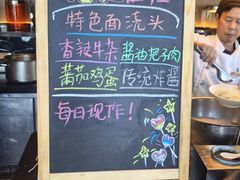 特色面浇头
香辣牛杂 酱油肥子肉
蕃茄鸡蛋 传统炸酱
每日现作！